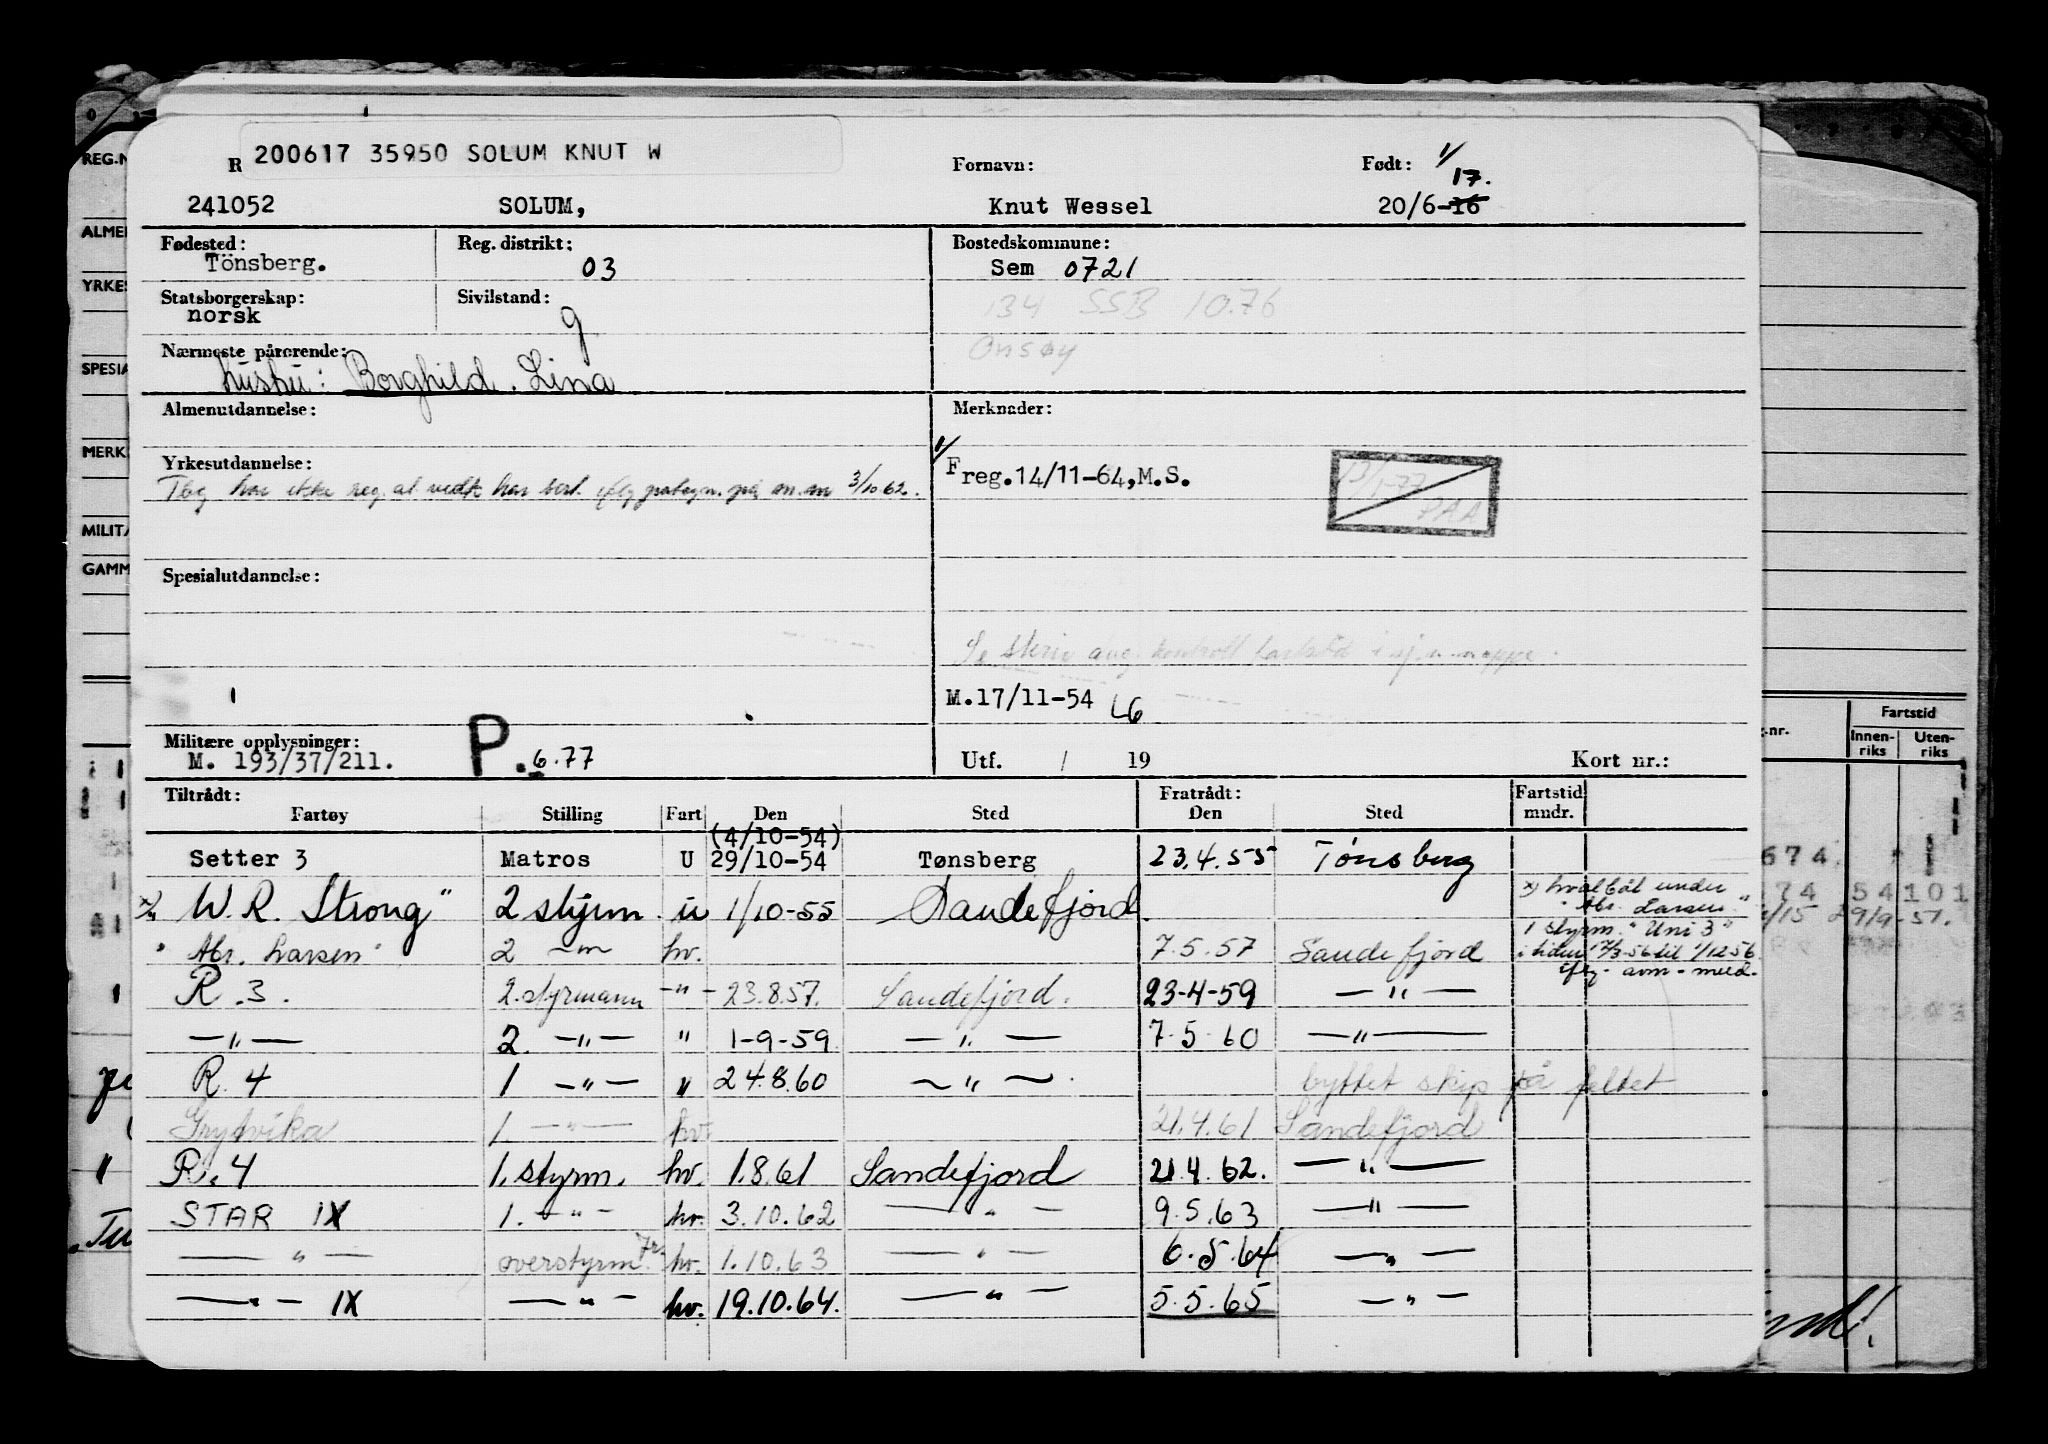 200617 35950 SOLUM KNUT W
R Fornavn: Født: 1/
17.
241052 SOLUM, Knut Wessel 20/6-16
Fødested: Reg. distrikt: Bostedskommune:
Tönsberg. 03 Sem 0721
Statsborgerskap: Sivilstand: 134 SSB 10.76
norsk g
Nærmeste pårørende: Onsøy
hustru: Borghild. Lina
Almenutdannelse: Merknader:
Yrkesutdannelse: 1/ Freg.14/11-64,M.S. 13/1-77
har ikke reg. at vedk har på m.m 3/10 62. PAA
Spesialutdannelse:
Se skriv ang. kontroll fartstid i mappe.
M.17/11-54 LG
Militære opplysninger: P.6.77
M. 193/37/211. Utf. / 19 Kort nr.:
Tiltrådt: Fratrådt: Fartstid
Fartøy Stilling Fart Den Sted Den Sted mndr.
(4/10-54)
Setter 3 Matros U 29/10-54 Tønsberg 23.4.55 Tönsberg
x) W.R. Strong" 2 styrm. u 1/10-55 Sandefjord. x) hvalbåt under
"Abr. Larsen."
"Abr. Larsen" 2 —"— hv. 7.5.57 Sandefjord 1 styrm. "Uni 3"
i tiden 17/3-56 til 1/12-56
R.3. 2. styrmann —"— 23.8.57. Sandefjord. 23-4-59 —"—
—"— 2. —"— " 1-9-59 —"— 7.5.60 —"—
R.4 1 —"— " 24.8.60 —"—. byttet skip på feltet
Grytvika 1. —"— hv. 21.4.61 Sandefjord
R.4 1. styrm. hv. 1.8.61 Sandefjord 21.4.62. —"—
STAR IX 1. —"— hv. 3.10.62 —"— 9.5.63 —"—
—"— overstyrm. hv. 1.10.63 —"— 6.5.64 —"—
—"— IX —"— hv. 19.10.64. —"— 5.5.65 —"—
REG.N
ALMEN
YRKES
SPESIA
MERK
MILITÆ
GAMM
Fartstid
Innen-riks Uten-riks
674.
74 54 101